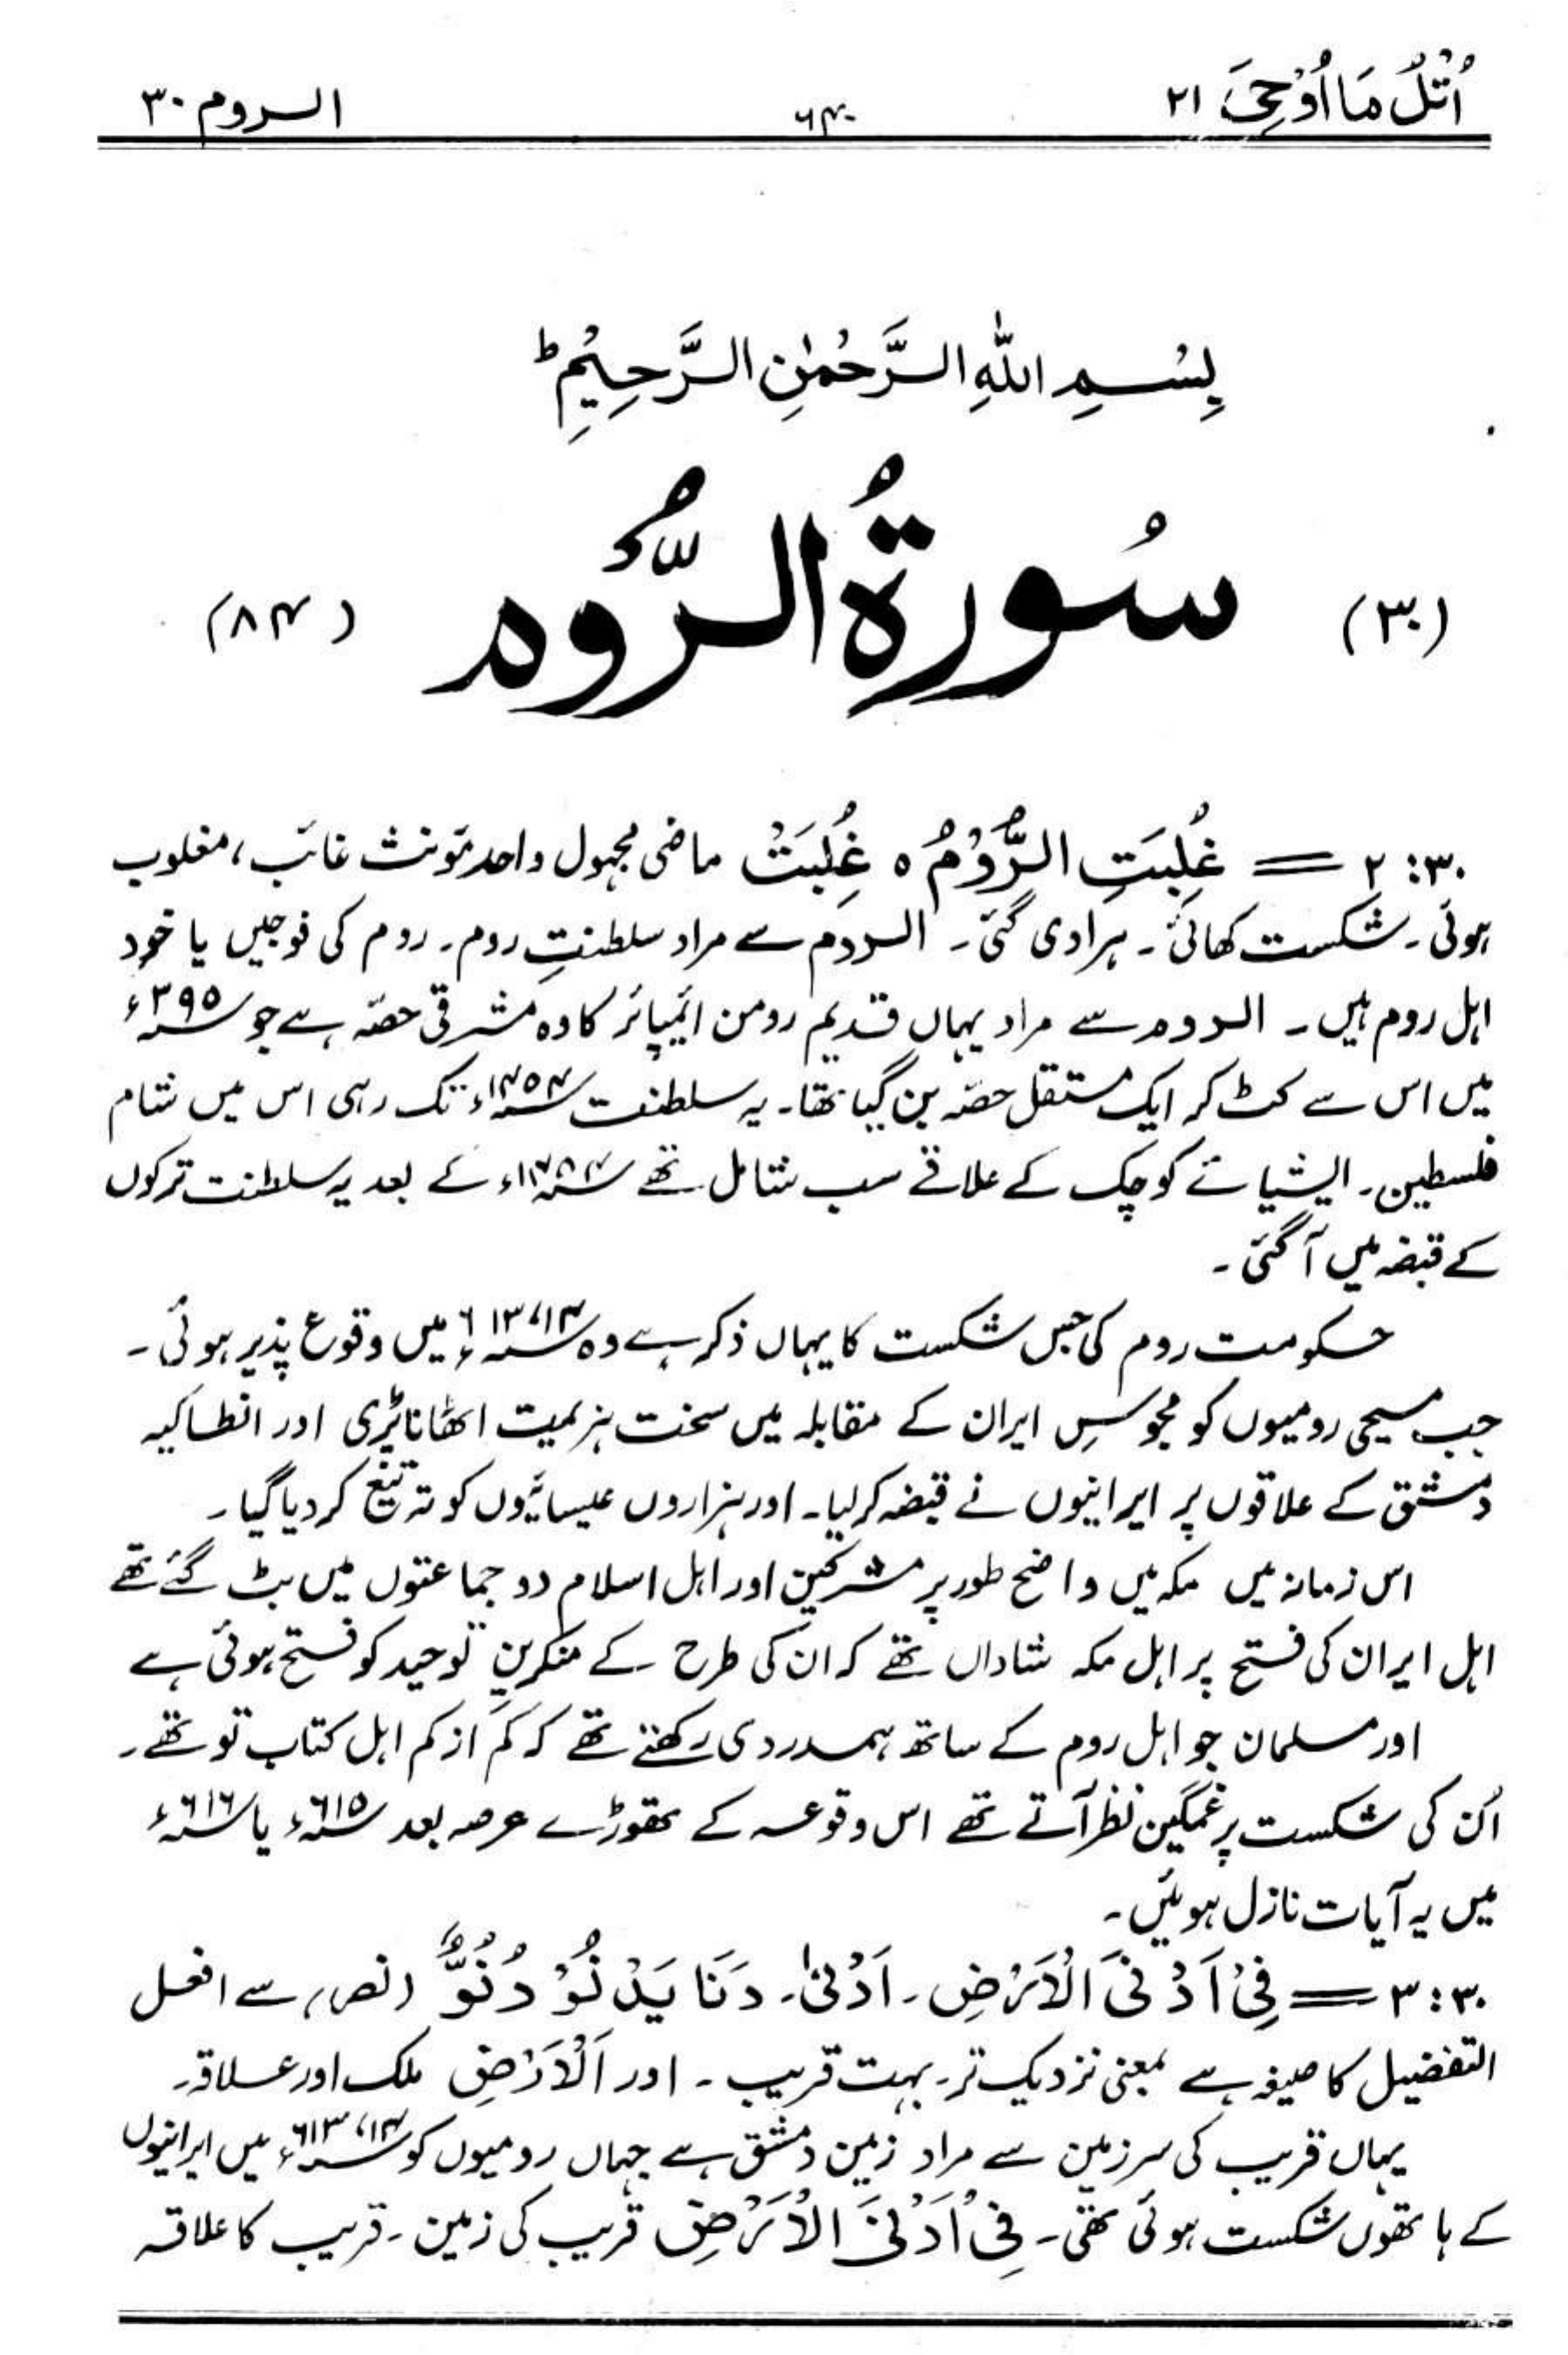 اُتْلُ مَا اُوْحِیَ ۲۱ ۶۴۰ الروم ۳۰
بِسْمِ اللّٰهِ الرَّحْمٰنِ الرَّحِيْمِ ط
(۳۰) سُورۃُ الرُّوم (۸۴)
۳۰:۲ = غُلِبَتِ الرُّوْمُ ہ غُلِبَتْ ماضی مجہول واحد مؤنث غائب، مغلوب
ہوئی۔ شکست کھائی۔ ہرادی گئی۔ الروم سے مراد سلطنتِ روم۔ روم کی فوجیں یا خود
اہل روم ہیں۔ الروم سے مراد یہاں قدیم رومن ایمپائر کا وہ مشرقی حصّہ ہے جو ۳۹۵ء
میں اس سے کٹ کر ایک مستقل حصّہ بن گیا تھا۔ یہ سلطنت ۱۴۵۳ء تک رہی اس میں شام
فلسطین۔ ایشیائے کوچک کے علاقے سب شامل تھے کے بعد یہ سلطنت ترکوں
کے قبضہ میں آگئی۔
حکومت روم کی جس شکست کا یہاں ذکر ہے وہ ۶۱۳،۱۴ء میں وقوع پذیر ہوئی۔
جب مسیحی رومیوں کو مجوسِ ایران کے مقابلہ میں سخت ہزیمت اٹھانا پڑی اور انطاکیہ
دمشق کے علاقوں پر ایرانیوں نے قبضہ کرلیا۔ اور ہزاروں عیسائیوں کو تہ تیغ کر دیا گیا۔
اس زمانہ میں مکہ میں واضح طور پر مشرکین اور اہل اسلام دو جماعتوں میں بٹ گئے تھے
اہل ایران کی فتح پر اہل مکہ شاداں تھے کہ ان کی طرح کے منکرینِ توحید کو فتح ہوئی ہے
اور مسلمان جو اہل روم کے ساتھ ہمدردی رکھتے تھے کہ کم از کم اہل کتاب تو تھے۔
اُن کی شکست پر غمگین نظر آتے تھے اس وقوعہ کے تھوڑے عرصہ بعد ۶۱۵ء یا ۶۱۶ء
میں یہ آیات نازل ہوئیں۔
۳۰:۳ = فِیْ اَدْنَی الْاَرْضِ۔ اَدْنٰی۔ دَنَا یَدْنُوْ دُنُوٌّ (نصر) سے افعل
التفضیل کا صیغہ ہے بمعنی نزدیک تر۔ بہت قریب۔ اور اَلْاَرْضِ ملک اور علاقہ۔
یہاں قریب کی سرزمین سے مراد زمین دمشق ہے جہاں رومیوں کو ۶۱۳،۱۴ء میں ایرانیوں
کے ہاتھوں شکست ہوئی تھی۔ فِیْ اَدْنَی الْاَرْضِ قریب کی زمین۔ قریب کا علاقہ